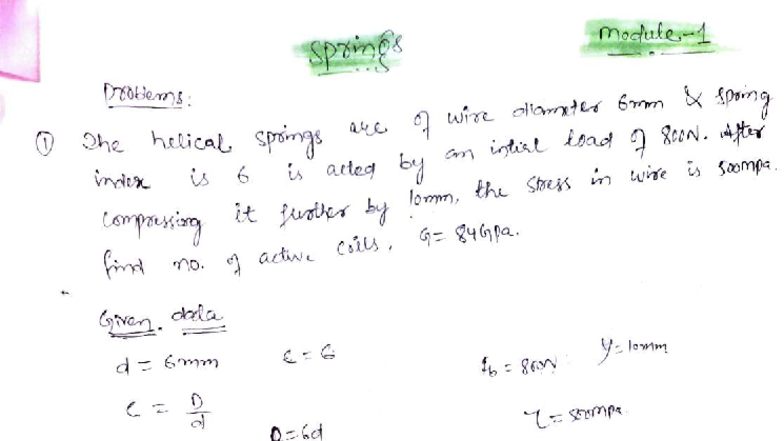 Springs
Module-1
Problems:
① The helical springs are of wire diameter 6mm & spring
index is 6 is acted by an intial load of 800N. After
compressing it further by 10mm, the stress in wire is 500mpa.
find no. of active coils. G = 84Gpa.
Given data
d = 6mm c = 6 y = 10mm
= 800N
c = D/d τ = 500mpa
D = 6d